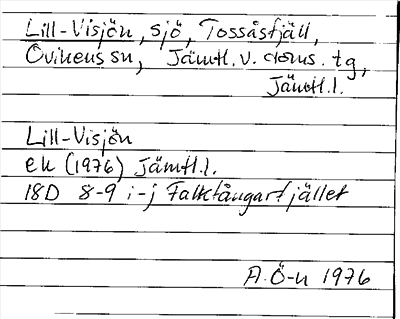 Lill-Visjön, sjö, Tossåsfjäll,
Ovikens sn, Jämtl. v. doms. tg,
Jämtl.l.
Lill-Visjön
ek (1976) Jämtl.l.
18D 8-9 i-j Falkfångarfjället
A.Ö-n 1976